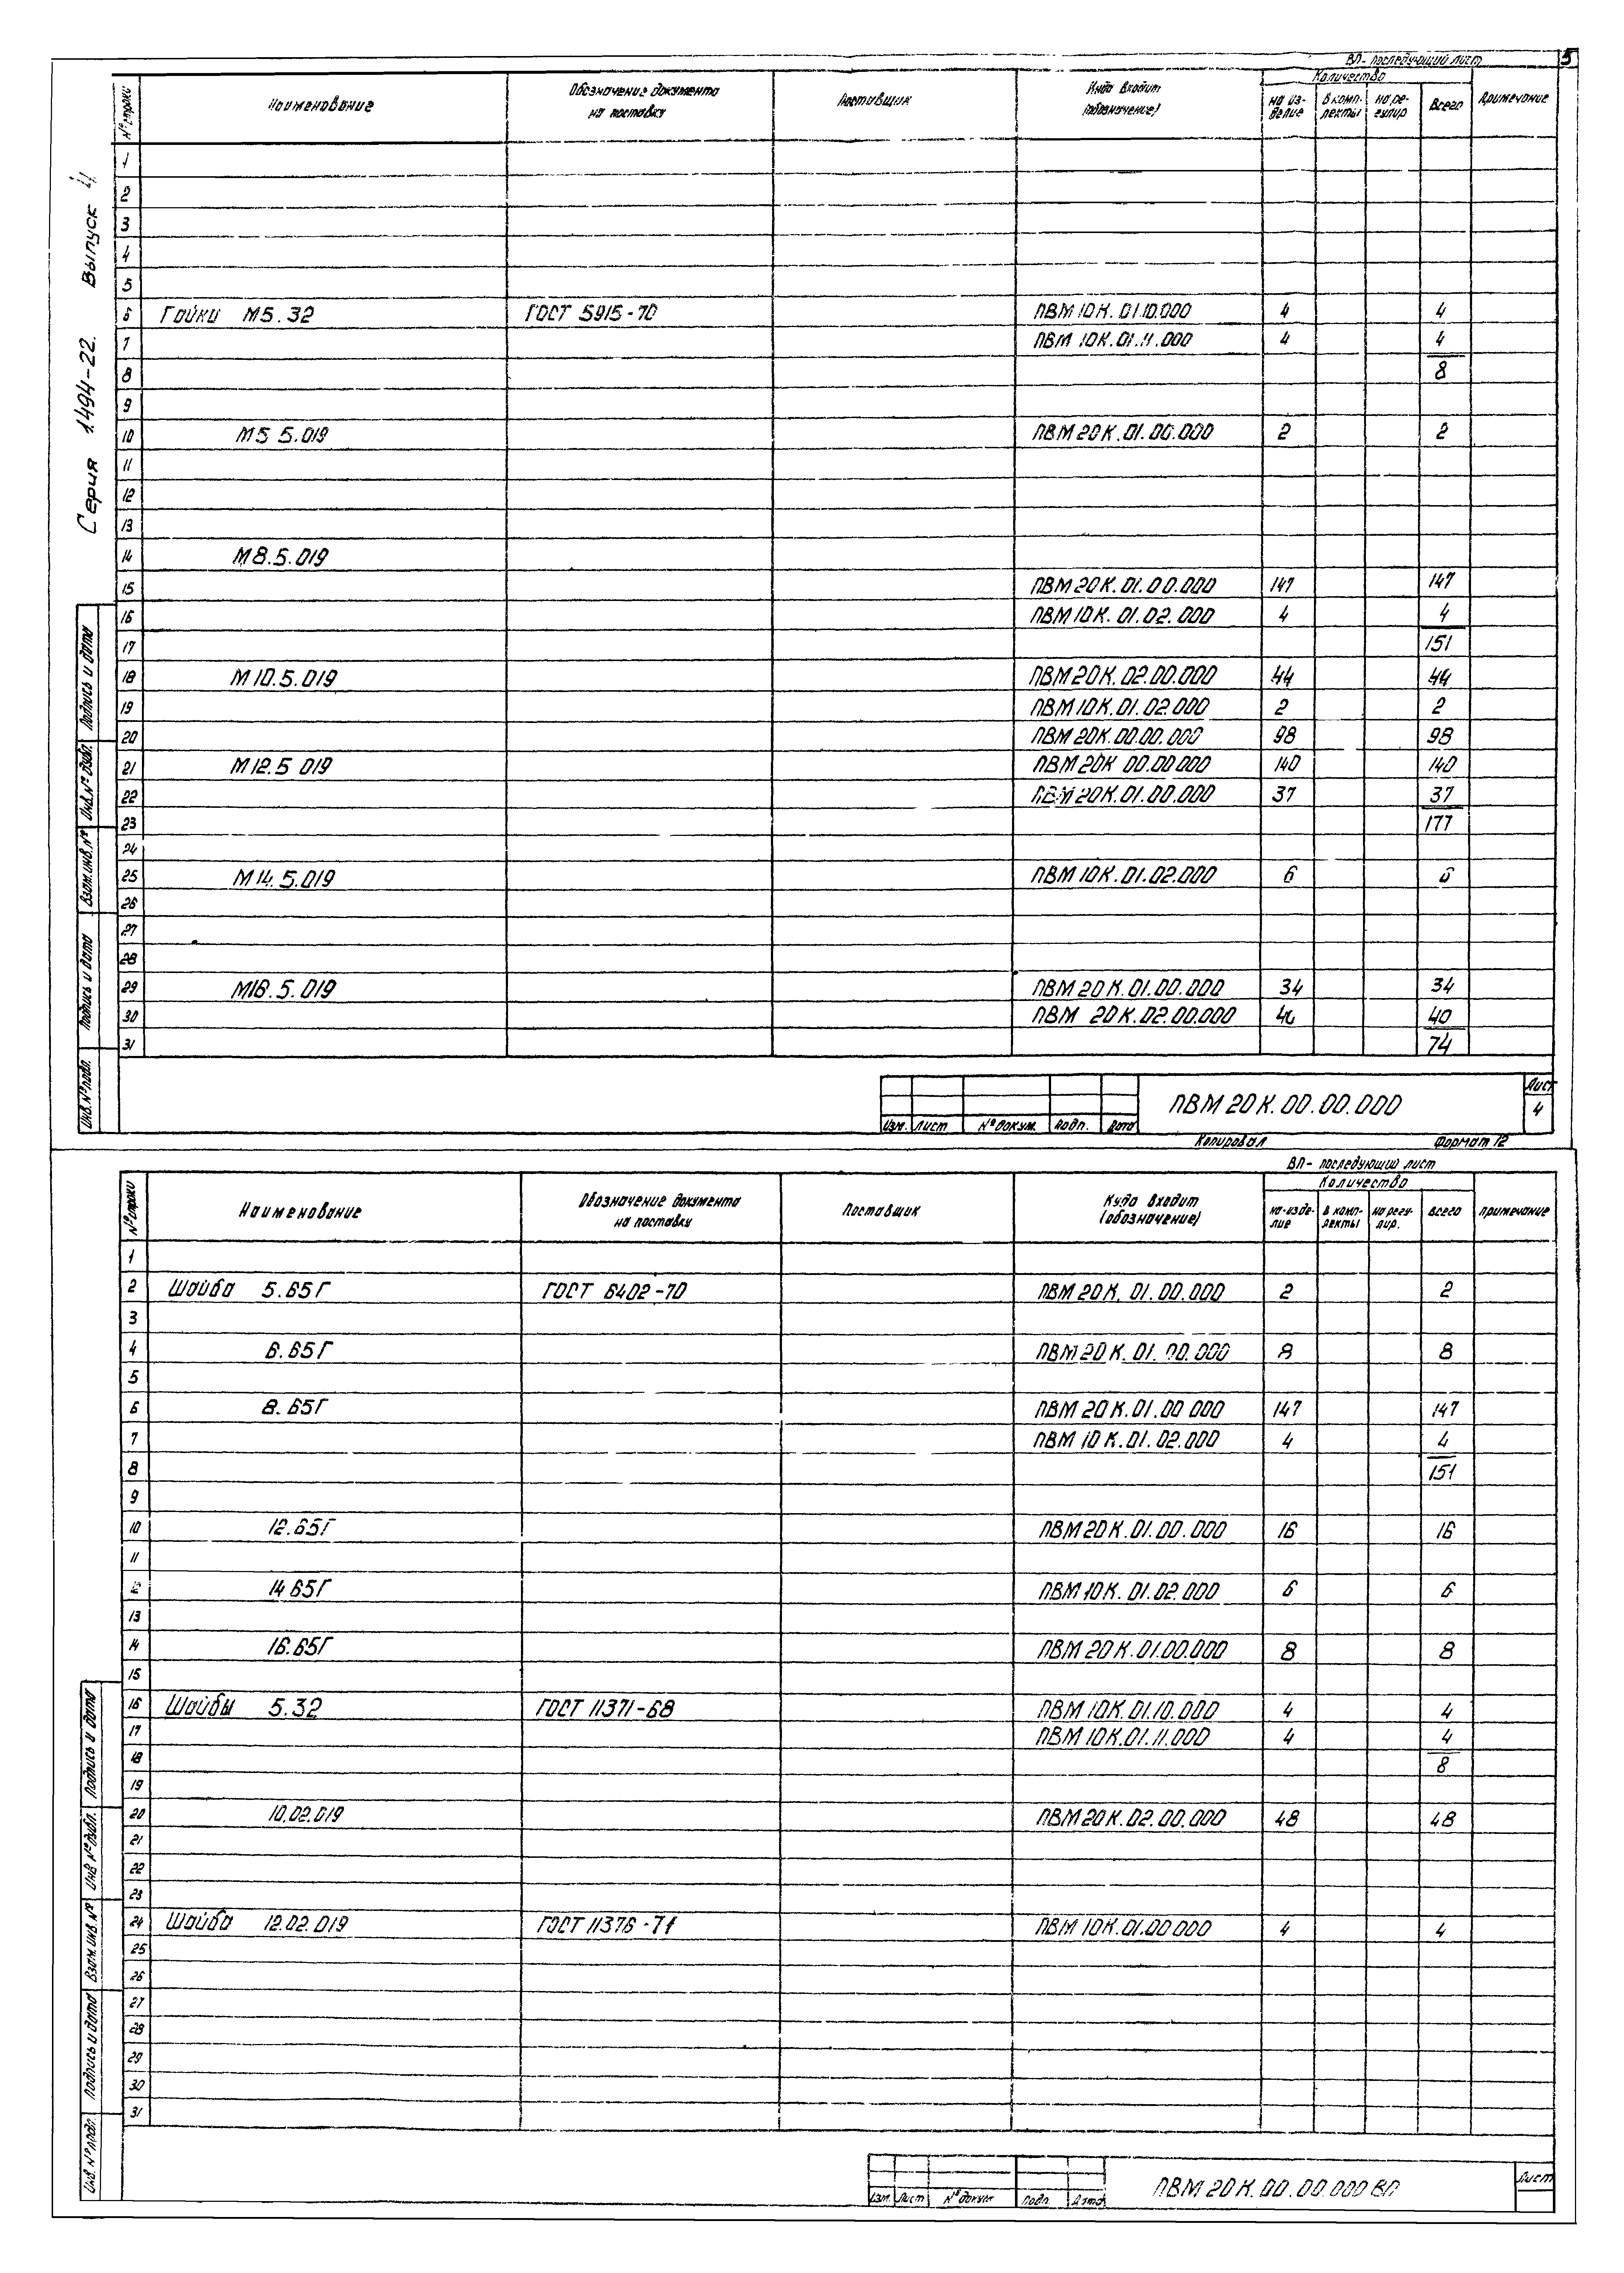 5
ВП - последующий лист
Серия 1.494-22. Выпуск 4
№ строки Наименование Обозначение документа на поставку Поставщик Куда входит (обозначение) Количество Примечание
на изделие в комплекты на регулир Всего
1
2
3
4
5
6 Гайки М5.32 ГОСТ 5915-70 ПВМ 10К.01.10.000 4 4
7 ПВМ 10К.01.11.000 4 4
8 8
9
10 М5 5.019 ПВМ 20К.01.00.000 2 2
11
12
13
14 М8.5.019
15 ПВМ 20К.01.00.000 147 147
16 ПВМ 10К.01.02.000 4 4
17 151
18 М10.5.019 ПВМ 20К.02.00.000 44 44
19 ПВМ 10К.01.02.000 2 2
20 ПВМ 20К.00.00.000 98 98
21 М12.5 019 ПВМ 20К 00.00 000 140 140
22 ПВМ 20К.01.00.000 37 37
23 177
24
25 М14.5.019 ПВМ 10К.01.02.000 6 6
26
27
28
29 М16.5.019 ПВМ 20К.01.00.000 34 34
30 ПВМ 20К.02.00.000 40 40
31 74
Инв. № подл. Подпись и дата Взам. инв. № Инв. № дубл. Подпись и дата
Изм. Лист № докум. Подп. Дата
ПВМ 20К.00.00.000
Лист
4
Копировал Формат 12
ВП - последующий лист
№ строки Наименование Обозначение документа на поставку Поставщик Куда входит (обозначение) Количество Примечание
на изделие в комплекты на регулир. Всего
1
2 Шайба 5.65Г ГОСТ 6402-70 ПВМ 20К.01.00.000 2 2
3
4 6.65Г ПВМ 20К.01.00.000 8 8
5
6 8.65Г ПВМ 20К.01.00 000 147 147
7 ПВМ 10К.01.02.000 4 4
8 151
9
10 12.65Г ПВМ 20К.01.00.000 16 16
11
12 14 65Г ПВМ 10К.01.02.000 6 6
13
14 16.65Г ПВМ 20К.01.00.000 8 8
15
16 Шайбы 5.32 ГОСТ 11371-68 ПВМ 10К.01.10.000 4 4
17 ПВМ 10К.01.11.000 4 4
18 8
19
20 10.02.019 ПВМ 20К.02.00.000 48 48
21
22
23
24 Шайба 12.02.019 ГОСТ 11376-71 ПВМ 10К.01.00 000 4 4
25
26
27
28
29
30
31
Инв. № подл. Подпись и дата Взам. инв. № Инв № дубл. Подпись и дата
Изм. Лист № докум Подп. Дата
ПВМ 20К.00.00.000 ВП
Лист